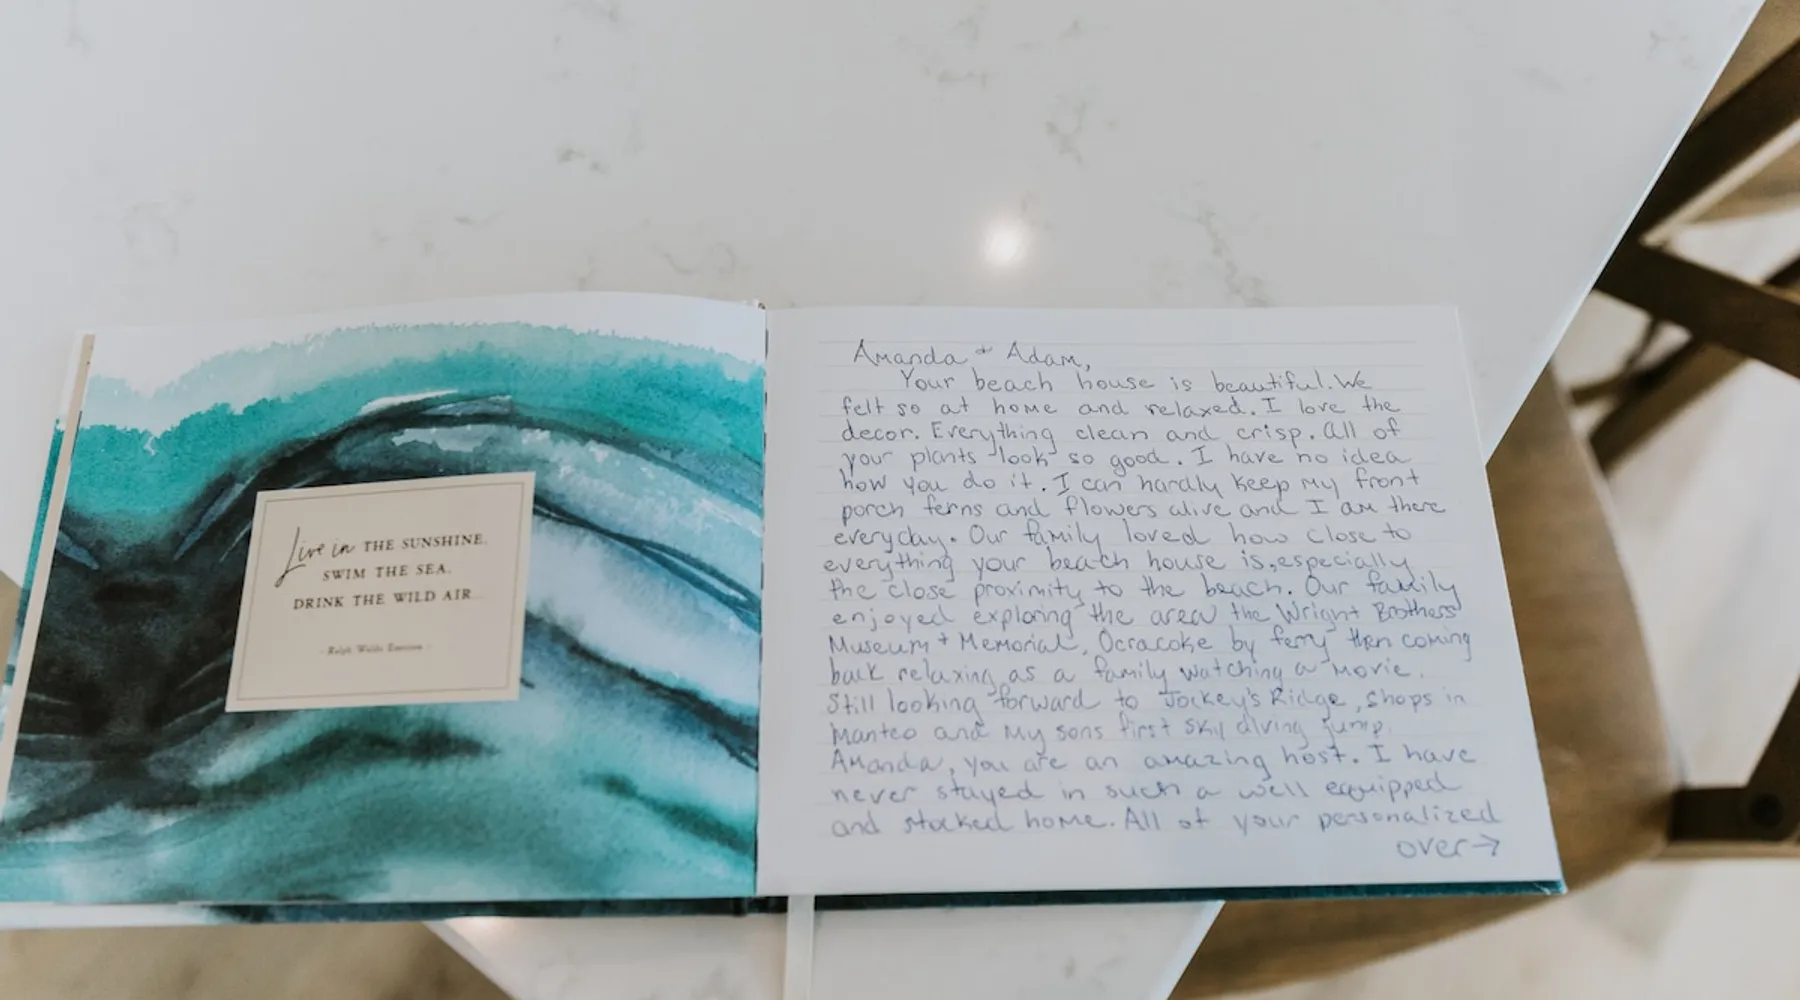 Live in THE SUNSHINE,
SWIM THE SEA,
DRINK THE WILD AIR
- Ralph Waldo Emerson -
Amanda + Adam,
Your beach house is beautiful. We
felt so at home and relaxed. I love the
decor. Everything clean and crisp. All of
your plants look so good. I have no idea
how you do it. I can hardly keep my front
porch ferns and flowers alive and I am there
everyday. Our family loved how close to
everything your beach house is, especially
the close proximity to the beach. Our family
enjoyed exploring the area the Wright Brothers
Museum + Memorial, Ocracoke by ferry then coming
back relaxing as a family watching a movie.
Still looking forward to Jockey's Ridge, shops in
Manteo and my sons first sky diving jump.
Amanda, you are an amazing host. I have
never stayed in such a well equipped
and stocked home. All of your personalized
over →